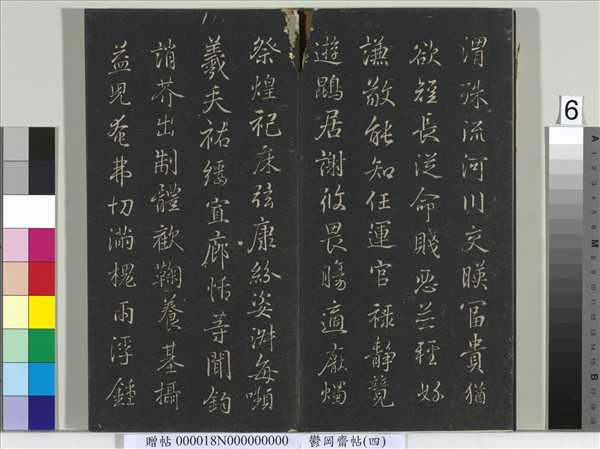 渭殊流河川交暎富貴猶
欲短長從命賤惡並輕好
謙敬能知任運官祿靜競
遊鵾居謝攸畏觴適厭燭
祭煌祀床弦康紛姿淑每嚬
義矣祐綏宜廊恬等聞鈞
誚芥出制體歡鞠養基攝
益兒奄弗切滿槐雨浮鍾
贈帖 000018N000000000 鬱岡齋帖(四)
6